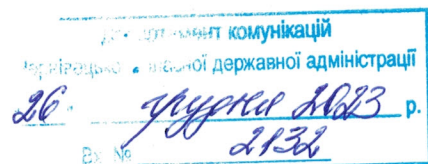 Департамент комунікацій
Чернівецької обласної державної адміністрації
26 грудня 2023 р.
Вх № 2132